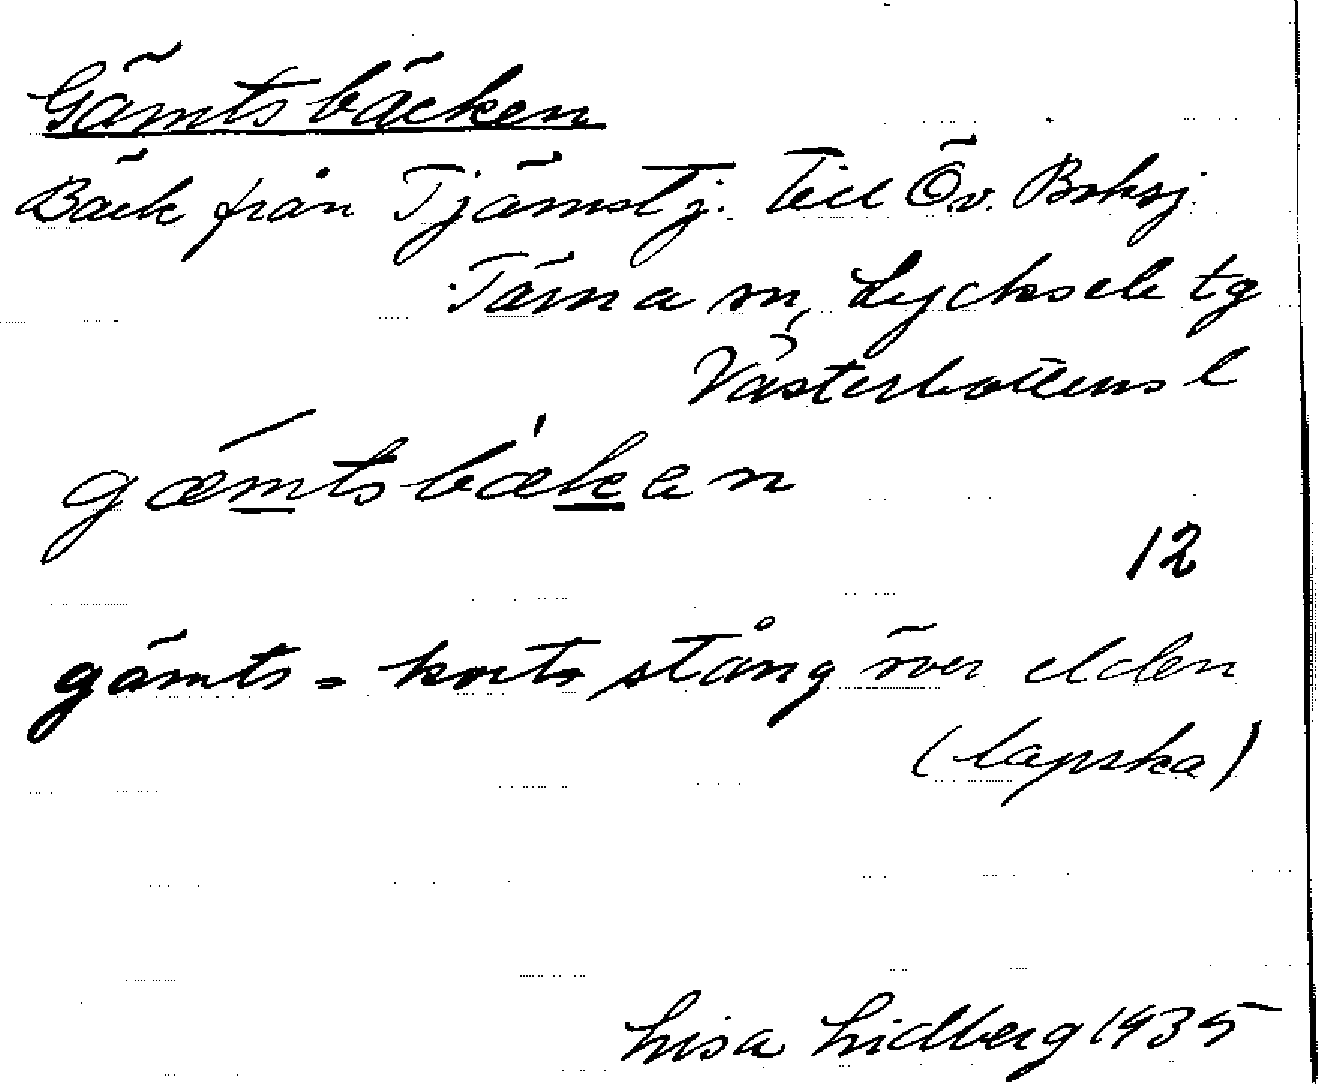 Gämtsbäcken
Bäck från Tjämstj. till Öv. Boksj.
Tärna sn, Lycksele tg
Västerbottens l
gæmtsbækan
12
gämts = korts stång över elden
(lapska)
Lisa Lidberg 1935